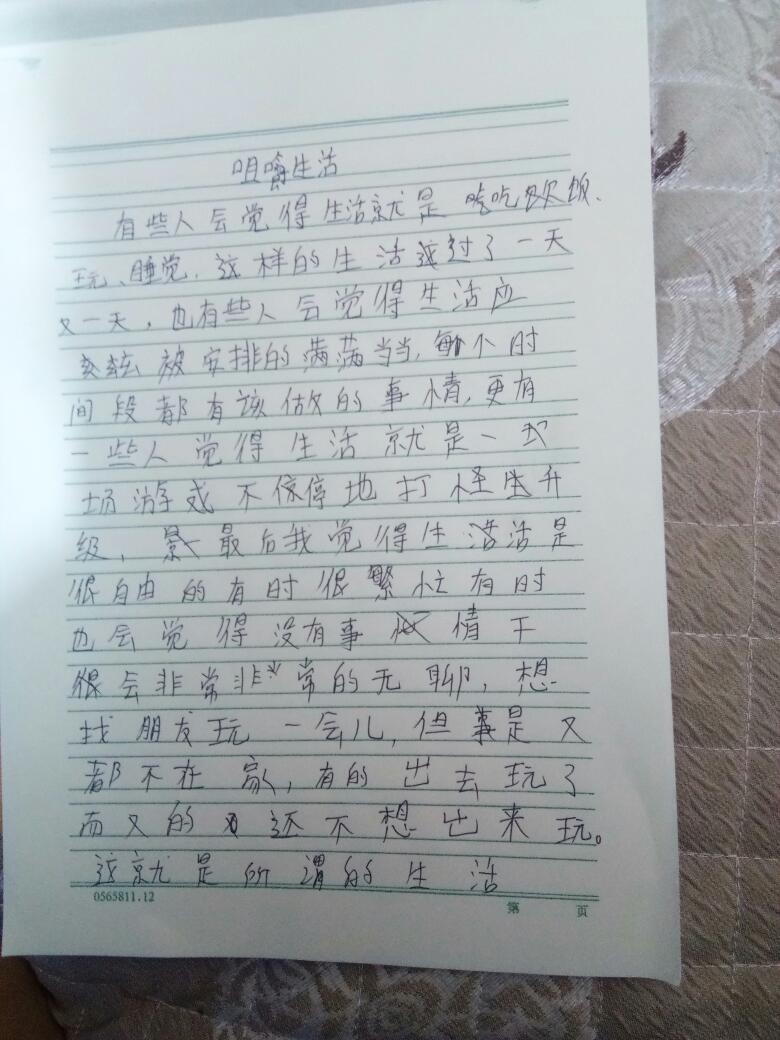 咀嚼生活
有些人会觉得生活就是吃吃饮饭、
玩、睡觉，这样的生活过了一天
又一天，也有些人会觉得生活应
该被安排的满满当当，每个时
间段都有该做的事情，更有
一些人觉得生活就是一
场游戏不停停地打怪升
级，最后我觉得生活是
很自由的有时很繁忙有时
也会觉得没有事情干
很会非常非常的无聊，想
找朋友玩一会儿，但是又
都不在家，有的出去玩了
而又的还不想出来玩。
这就是所谓的生活
0565811.12
第 页